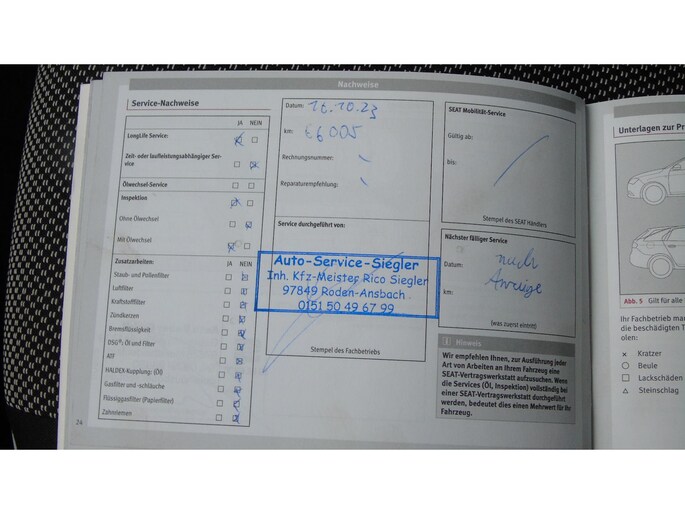 Nachweise
Service-Nachweise
JA NEIN
LongLife Service:
Zeit- oder laufleistungsabhängiger Ser-
vice
Ölwechsel-Service
Inspektion
Ohne Ölwechsel
Mit Ölwechsel
Zusatzarbeiten: JA NEIN
Staub- und Pollenfilter
Luftfilter
Kraftstofffilter
Zündkerzen
Bremsflüssigkeit
DSG®: Öl und Filter
ATF
HALDEX-Kupplung: (Öl)
Gasfilter und -schläuche
Flüssiggasfilter (Papierfilter)
Zahnriemen
24
Datum: 16.10.23
km: 66005
Rechnungsnummer:
Reparaturempfehlung:
Service durchgeführt von:
Auto-Service-Siegler
Inh. Kfz-Meister Rico Siegler
97849 Roden-Ansbach
0151 50 49 67 99
Stempel des Fachbetriebs
SEAT Mobilität-Service
Gültig ab:
bis:
Stempel des SEAT Händlers
Nächster fälliger Service
Datum: nach
km: Anzeige
(was zuerst eintritt)
Hinweis
Wir empfehlen Ihnen, zur Ausführung jeder
Art von Arbeiten an Ihrem Fahrzeug eine
SEAT-Vertragswerkstatt aufzusuchen. Wenn
die Services (Öl, Inspektion) vollständig bei
einer SEAT-Vertragswerkstatt durchgeführt
werden, bedeutet dies einen Mehrwert für Ihr
Fahrzeug.
Unterlagen zur Pr
Abb. 5 Gilt für alle
Ihr Fachbetrieb mar
die beschädigten T
olen:
Kratzer
Beule
Lackschäden
Steinschlag